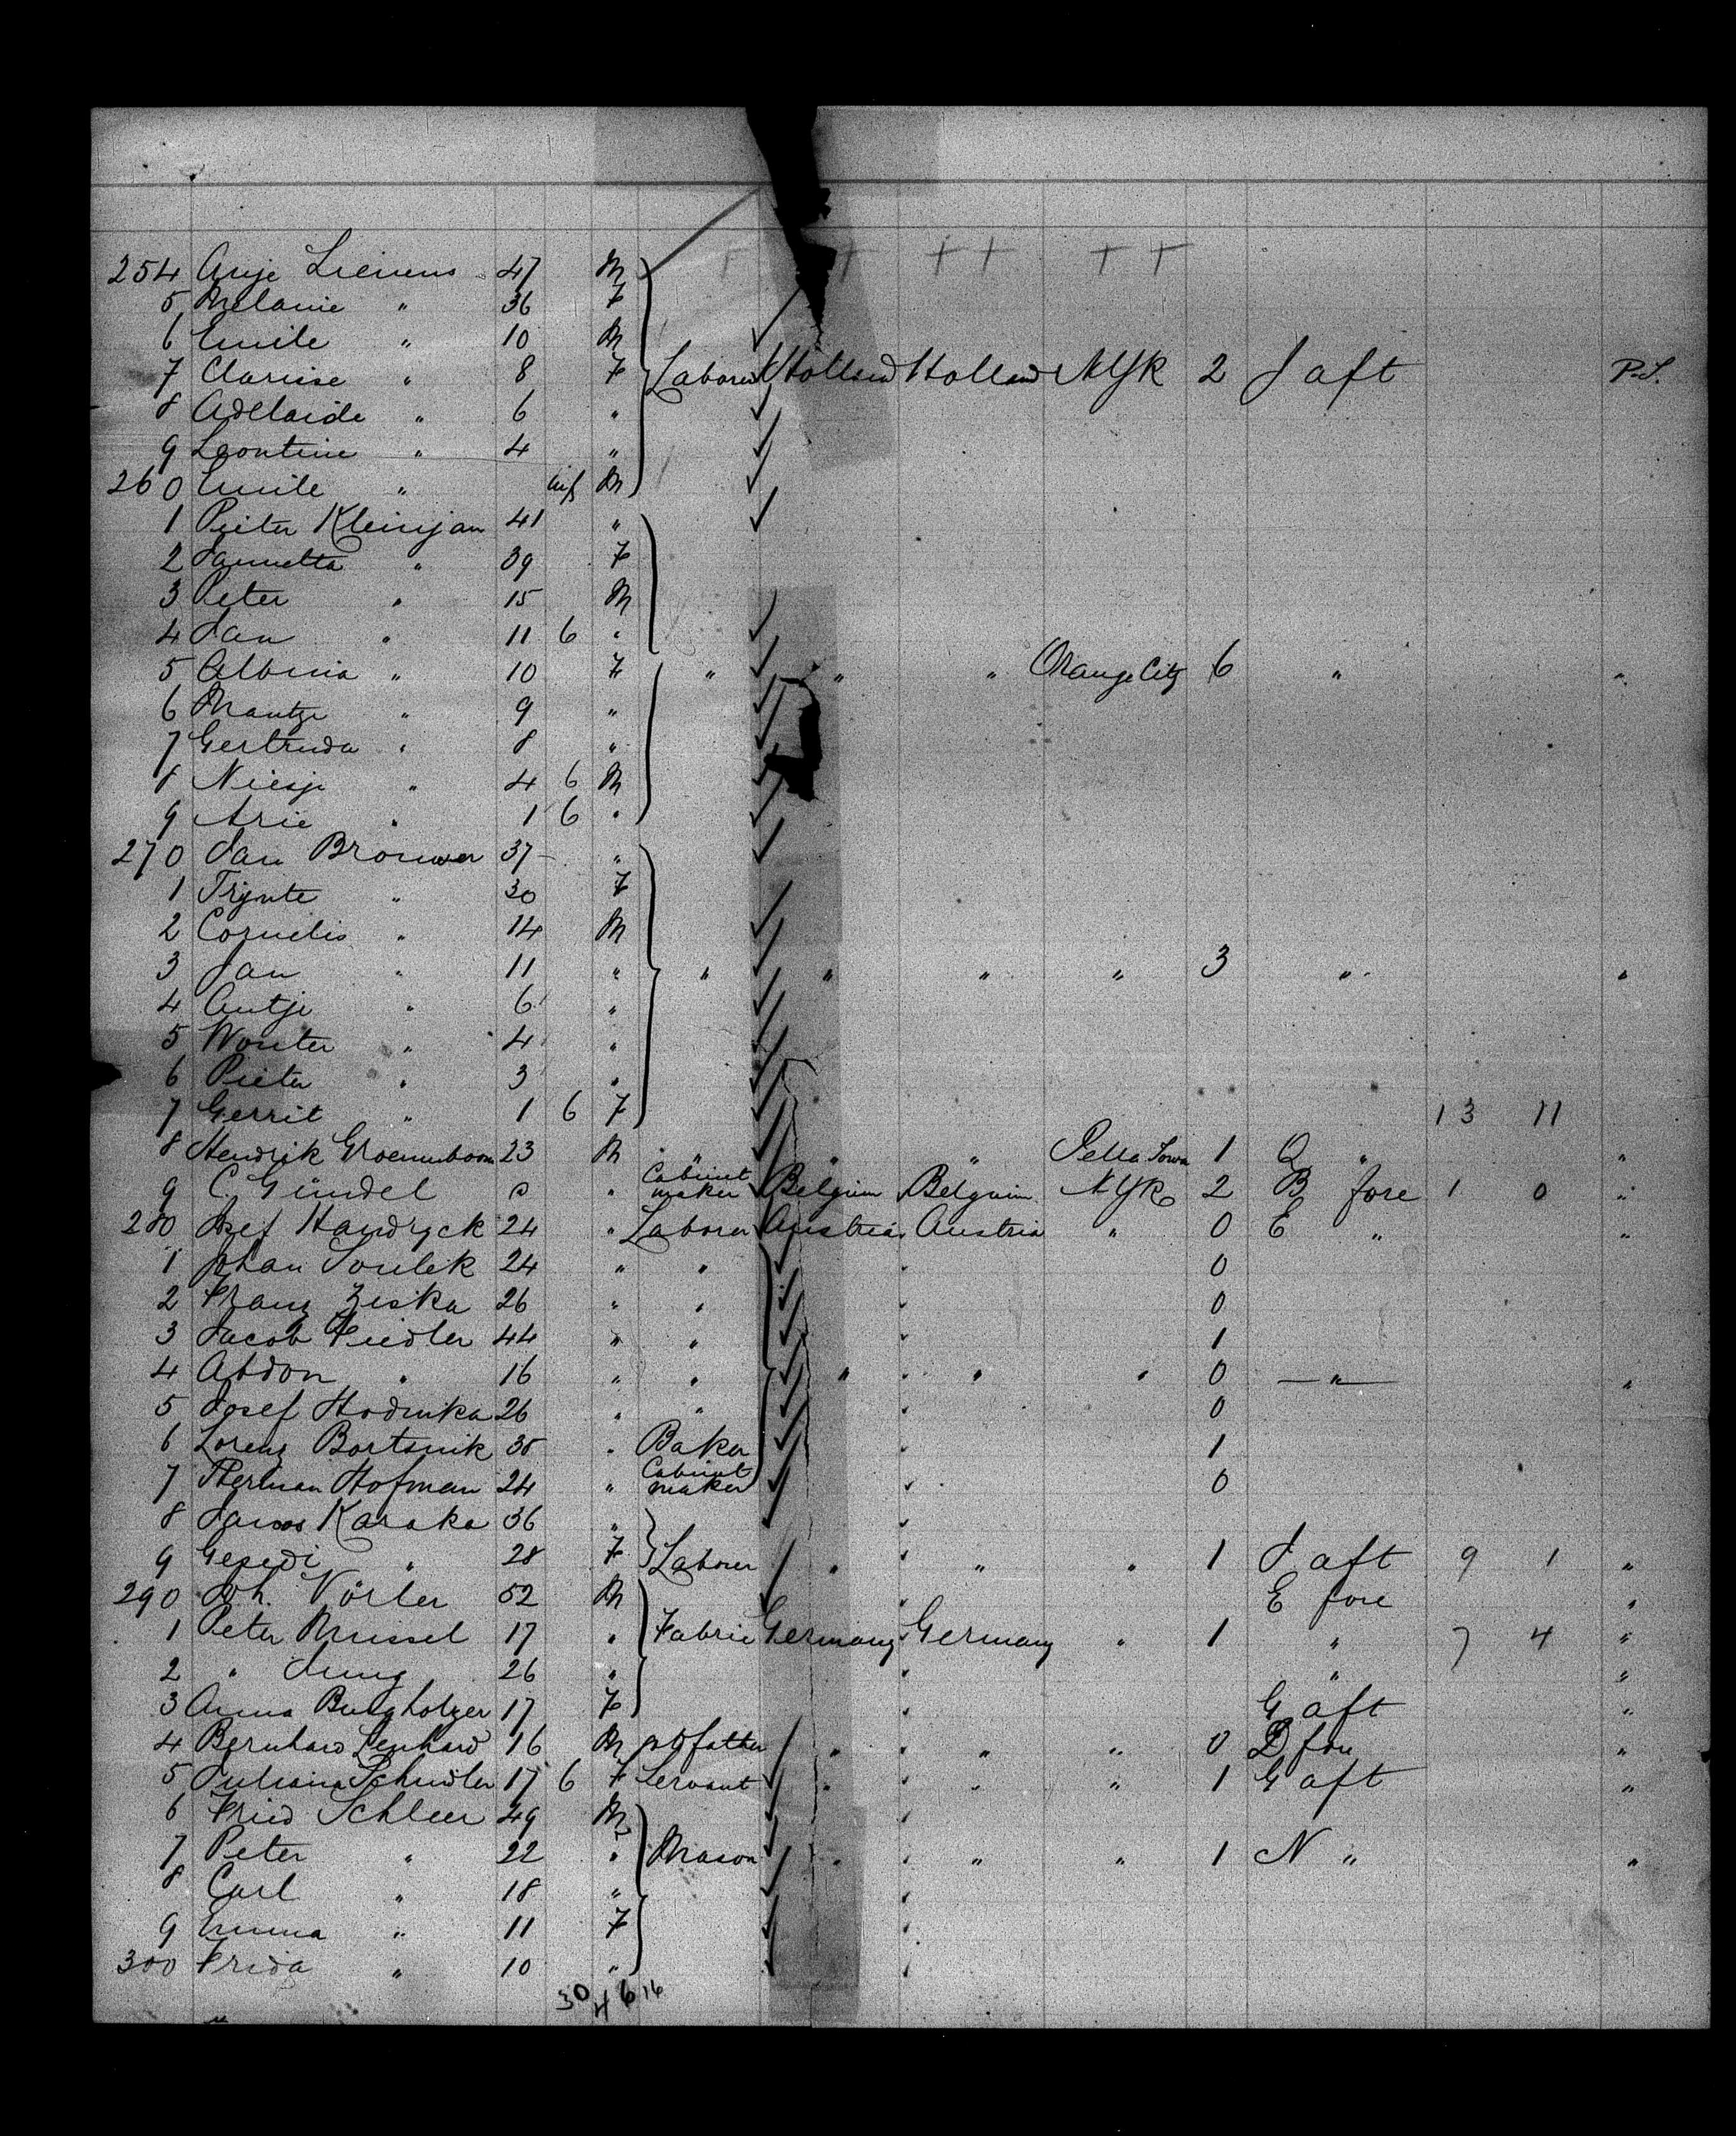 254 Anje Lievens 47 M
5 Melanie " 36 F
6 Emile " 10 M
7 Clarisse " 8 F Laborer Holland Holland NYk 2 J aft P.S.
8 Adelaide " 6 "
9 Leontine " 4 "
260 Emile " inf M
1 Pieter Kleinjan 41 "
2 Jannetta " 39 F
3 Peter " 15 M
4 Jan " 11 6 "
5 Albina " 10 F " " " Orange City 6 " "
6 Mantze " 9 "
7 Gertruda " 8 "
8 Niesje " 4 6 M
9 Arie " 1 6 "
270 Jan Brouwer 37 "
1 Trynte " 30 F
2 Cornelis " 14 M
3 Jan " 11 " " " " " 3 " "
4 Antje " 6 "
5 Wouter " 4 "
6 Pieter " 3 "
7 Gerrit " 1 6 F 13 11
8 Hendrik Groenenboom 23 M " " " Pella Iowa 1 Q " "
9 C. Gündel " Cabinet maker Belgium Belgium NYk 2 B fore 1 0 "
280 Josef Handryck 24 " Laborer Austria Austria " 0 E " "
1 Johan Soulek 24 " " 0
2 Franz Ziska 26 " " 0
3 Jacob Fiedler 44 " " 1
4 Abdon " 16 " " " " " 0 " "
5 Josef Hodinka 26 " " 0
6 Lorenz Bortsnik 35 " Baker 1
7 Herman Hofman 24 " Cabinet maker 0
8 Karaka 36 "
9 " 28 F Laborer " " " 1 J aft 9 1 "
290 Joh. Vörler 52 M E fore "
1 Peter Mussel 17 " Fabric Germany Germany " 1 " 7 4 "
2 " Jung 26 " " "
3 Anna Burgholzer 17 F G aft "
4 Bernhard Lenhard 16 M father " " " 0 fore "
5 Juliana Schindler 17 6 F Servant " " " 1 G aft "
6 Fried Schleer 49 M
7 Peter " 22 " Mason " " " 1 N " "
8 Carl " 18 "
9 Emma " 11 F
300 Frida " 10 "
30 4 6 16